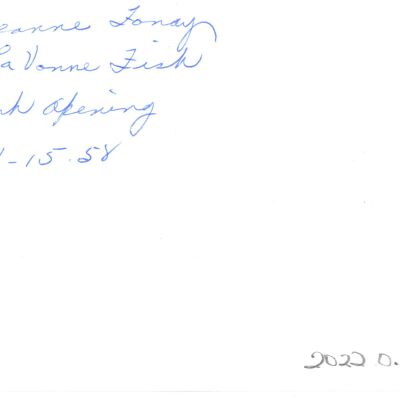 eanne Fonay
La Vonne Fish
nk Opening
1-15-58
2022 0.